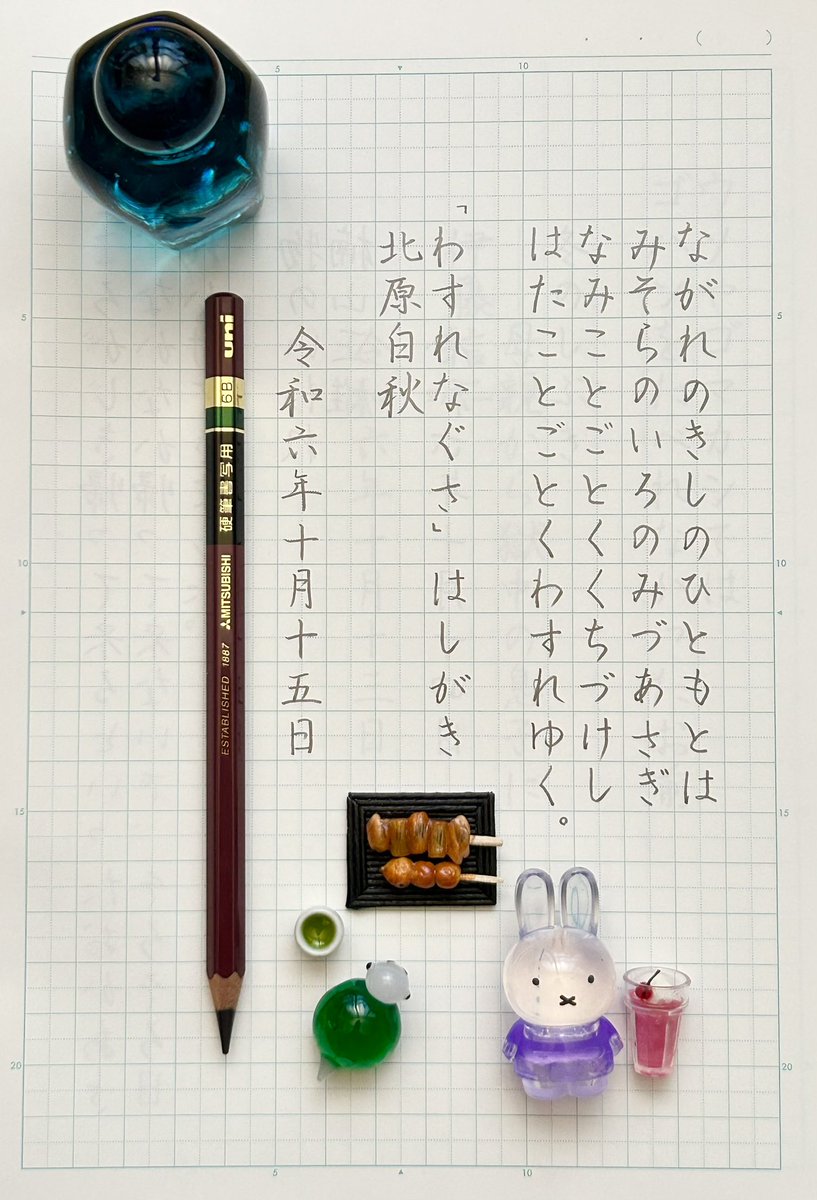 ながれのきしのひともとは
みそらのいろのみづあさぎ
なみことごとくくちづけし
はたことごとくわすれゆく。
「わすれなぐさ」はしがき
北原白秋
令和六年十月十五日
uni
6B
硬筆書写用
MITSUBISHI
ESTABLISHED 1887
( )
5
10
5
10
15
20
5
10
15
20
5
10